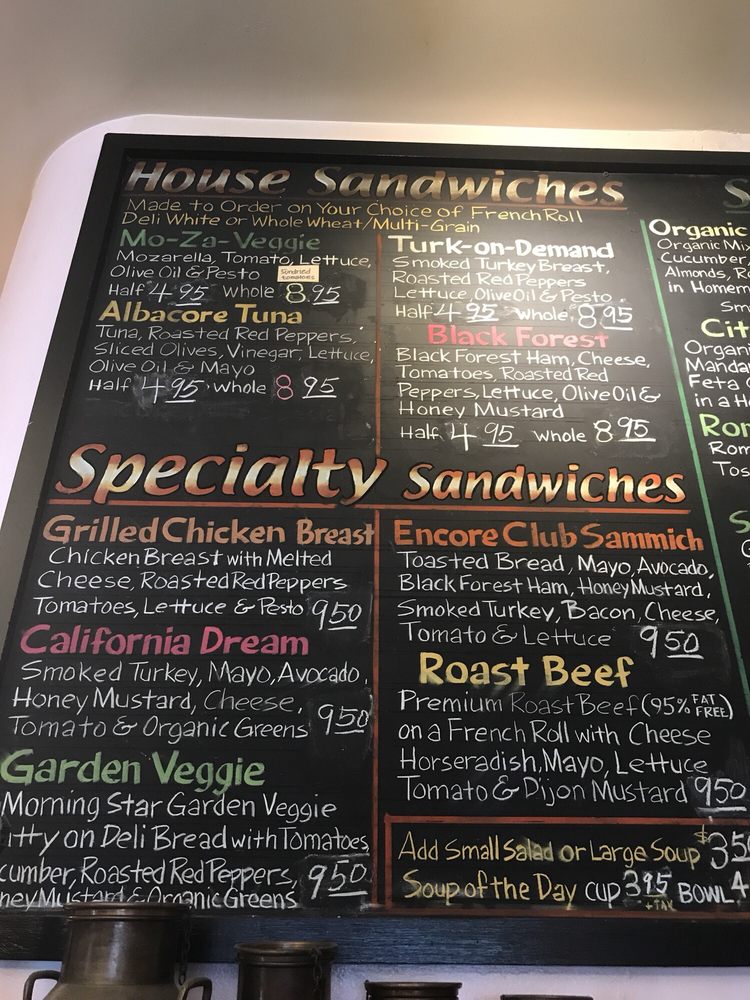 House Sandwiches
Made to Order on Your Choice of French Roll
Deli White or Whole Wheat/Multi-Grain
Mo-Za-Veggie
Mozarella, Tomato, Lettuce,
Olive Oil & Pesto
Sundried
tomatoes
Half 4.95 Whole 8.95
Albacore Tuna
Tuna, Roasted Red Peppers,
Sliced Olives, Vinegar, Lettuce,
Olive Oil & Mayo
Half 4.95 Whole 8.95
Turk-on-Demand
Smoked Turkey Breast,
Roasted Red Peppers
Lettuce, Olive Oil & Pesto
Half 4.95 Whole 8.95
Black Forest
Black Forest Ham, Cheese,
Tomatoes, Roasted Red
Peppers, Lettuce, Olive Oil &
Honey Mustard
Half 4.95 Whole 8.95
Specialty Sandwiches
Grilled Chicken Breast
Chicken Breast with Melted
Cheese, Roasted Red Peppers
Tomatoes, Lettuce & Pesto 9.50
California Dream
Smoked Turkey, Mayo, Avocado,
Honey Mustard, Cheese,
Tomato & Organic Greens 9.50
Garden Veggie
Morning Star Garden Veggie
tty on Deli Bread with Tomatoes,
cumber, Roasted Red Peppers, 9.50
ney Mustard & Organic Greens
Encore Club Sammich
Toasted Bread, Mayo, Avocado,
Black Forest Ham, Honey Mustard,
Smoked Turkey, Bacon, Cheese,
Tomato & Lettuce 9.50
Roast Beef
Premium Roast Beef (95% FAT FREE)
on a French Roll with Cheese
Horseradish, Mayo, Lettuce
Tomato & Dijon Mustard 9.50
Add Small Salad or Large Soup $3.50
Soup of the Day CUP 3.95 BOWL 4
+TAX
Organic
Organic Mix
Cucumber,
Almonds, R
in Homem
Sm
Cit
Organi
Manda
Feta C
in a Ho
Rom
Rom
Tos